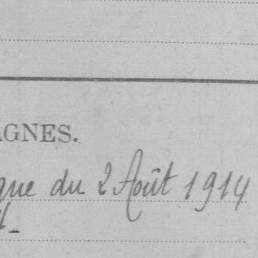 AGNES.
gne du 2 Août 1914